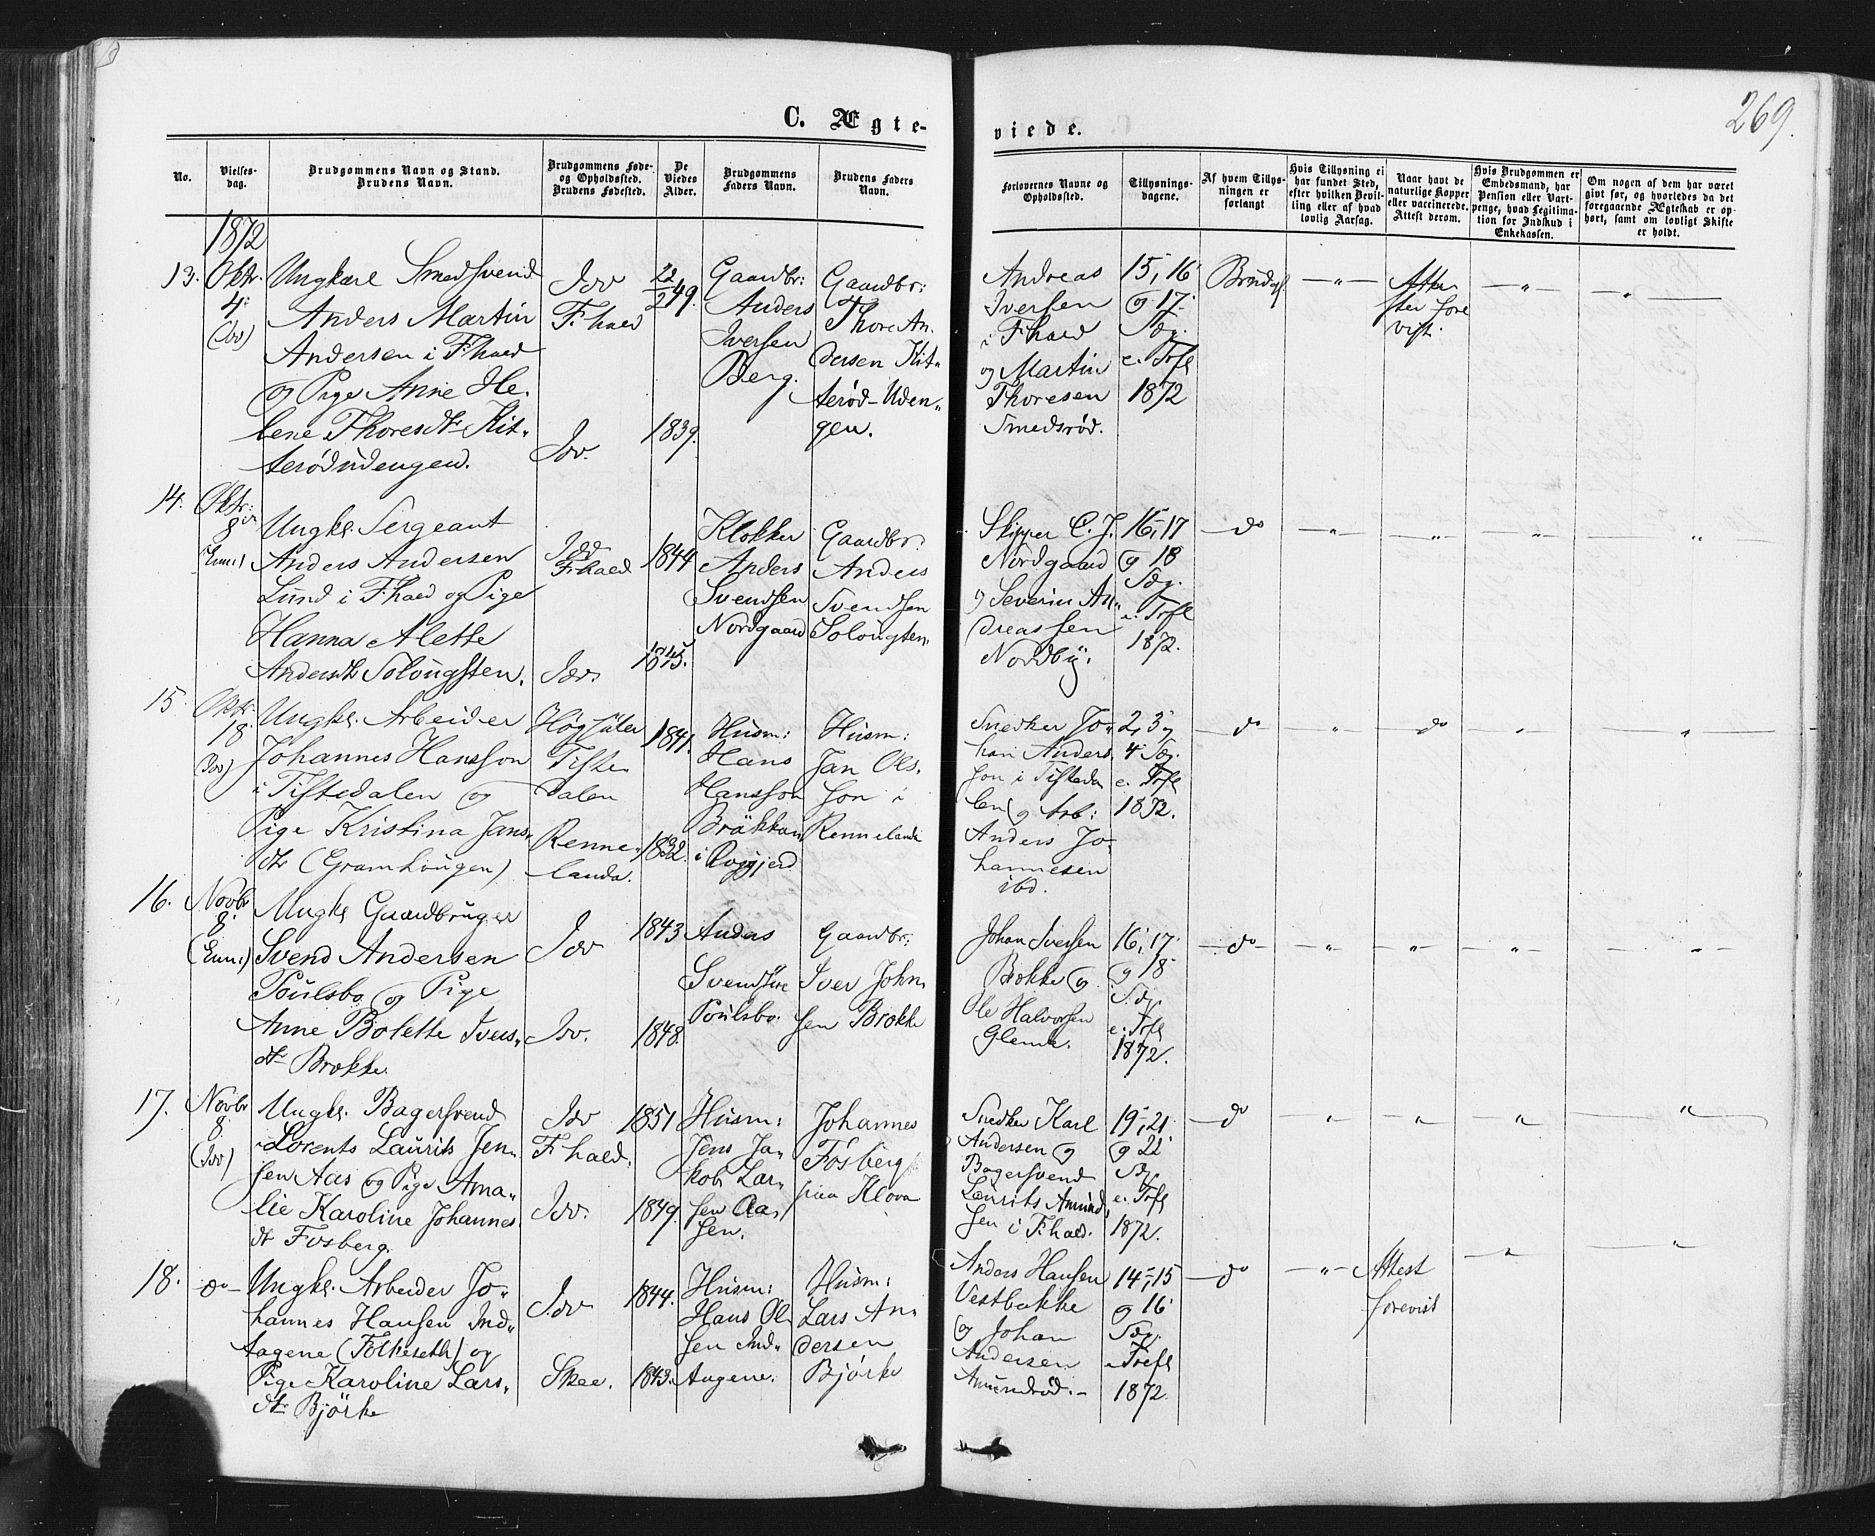 C. Ægte-
viede.
269.
No.
Vielses-
dag.
Brudgommens Navn og Stand.
Brudens Navn.
Brudgommens Føde-
og Opholdssted.
Brudens Fødested.
De
Viedes
Alder.
Brudgommens
Faders Navn.
Brudens Faders
Navn.
Forlovernes Navne og
Opholdssted.
Tillysnings-
dagene.
Af hvem Tillys-
ningen er
forlangt
Hvis Tillysning ei
har fundet Sted,
efter hvilken Bevil-
ling eller af hvad
lovlig Aarsag.
Naar havt de
naturlige Kopper
eller vaccinerede.
Attest derom.
Hvis Brudgommen er
Embedsmand, har
Pension eller Vart-
penge, hvad Legitima-
tion for Indskud i
Enkekassen.
Om nogen af dem har været
givt før, og hvorledes da det
foregaaende Ægteskab er op-
hørt, samt om lovligt Skifte
er holdt.
1872
13.
Oktr.
4.
(Idd)
Ungkarl Smedsvend
Anders Martin
Andersen i F.hald
og Pige Anne He-
lene Thoresdtr Kit-
terødudengen.
Idd
F.hald
Idd.
22/2 49.
1839.
Gaardbr:
Anders
Iversen
Berg.
Gaardbr:
Thore An-
dersen Kit-
terød-Uden-
gen.
Andreas
Iversen
i F.hald
og Martin
Thoresen
Smedsrød.
15, 16
og 17.
Sdg.
e. Trfl
1872
Brudg.
— " —
Atte-
ster fore-
vist.
— " —
— " —
14.
Oktr:
8de
(Enn:)
Ungkl. Sergeant
Anders Andersen
Lund i F.hald og Pige
Hanna Alette
Andersdtr Solougsten.
Idd
F.hald
Idd.
1844
1845.
Klokker
Anders
Svendsen
Nordgaard
Gaardbr.
Anders
Svendsen
Solougsten.
Skipper C. J.
Nordgaard
og Severin An-
dreassen
Nordby.
16, 17
og 18
Sdg.
e. Trfl
1872.
— do
— " —
"
"
"
15.
Oktr.
18
(Idd)
Ungkl. Arbeider
Johannes Hansson
i Tistedalen og
Pige Kristina Jans-
dtr (Gramhougen)
Högsäter
Tiste-
dalen
Renne-
landa.
1841.
1832.
Husm:
Hans
Hansson
Bräkkan
i Roggjerd
Husm:
Jan Ols-
son i
Rennelanda
Snedker Jo-
han Anders-
son i Tisteda-
len og Arb:
Anders Jo-
hannesen
ibd.
2, 3 og
4 Sdg.
e. Trfl
1872.
do
"
do
"
"
16.
Novbr
8.
(Enn:)
Ungkl Gaardbruger
Svend Andersen
Poulsbo og Pige
Anne Bolette Ivers-
dtr Brække.
Idd
Idd.
1843
1848.
Anders
Svendsen
Poulsbo.
Gaardbr.
Iver John-
sen Brække
Johan Iversen
Brække og
Ole Halvorsen
Glenne.
16, 17
og 18
Sdg.
e. Trfl
1872.
— do —
"
"
"
"
17.
Novbr
8.
(Idd)
Ungkl. Bagersvend
Lorents Laurits Jen-
sen Aas og Pige Ama-
lie Karoline Johannes-
dtr Fosberg.
Idd
F.hald.
Idd.
1851
1849.
Husm:
Jens Ja-
kob Lar-
sen Aa-
sen.
Johannes
Fosberg
Snedker Karl
Andersen og
Bagersvend
Laurits Amund-
sen i F.hald.
19, 21
og 22
Sdg.
e. Trfl
1872.
— do
"
"
"
"
18.
do —
Ungkl. Arbeider Jo-
hannes Hansen Ind-
tagene (Folkeseth) og
Pige Karoline Lars-
dtr Björke
Idd
Skee.
1844.
1843.
Husm:
Hans Ol-
sen Ind-
tagene.
Husm:
Lars An-
dersen
Bjørke
Anders Hansen
Vestbakke
og Johan
Andersen
Amundrød.
14, 15
og 16
Sdg.
e. Trefl
1872.
— do
— " —
Attest
forevist
"
"